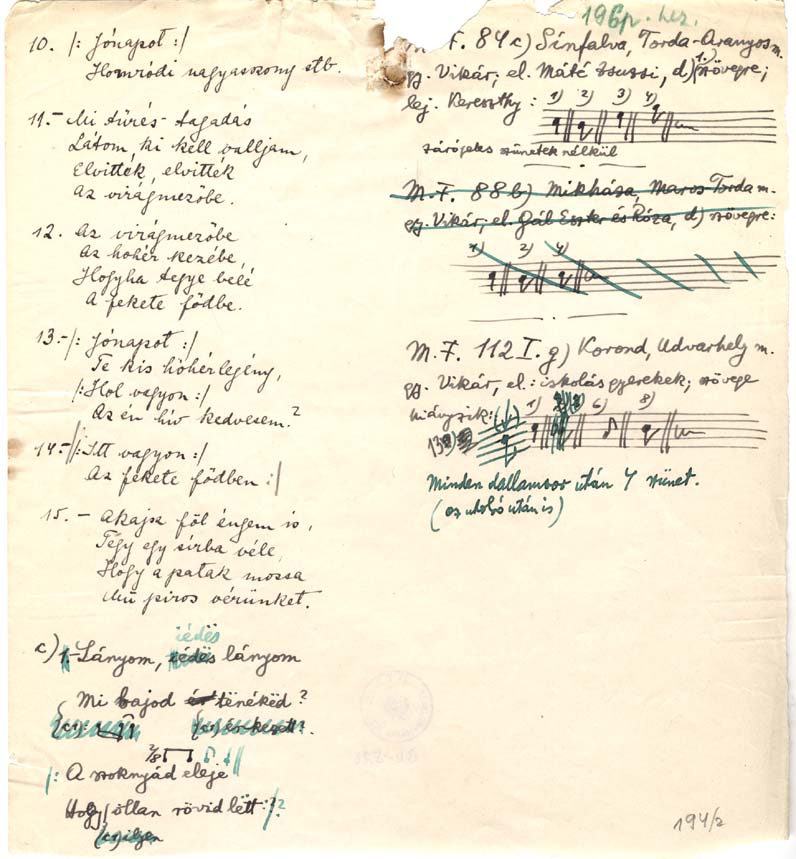 10. /: Jónapot :/
Homródi nagyasszony stb.
11.- Mi tűrés-tagadás
Látom, ki kell valljam,
Elvitték, elvitték
Az virágmezőbe.
12. Az virágmezőbe
Az hóhér kezébe,
Hogyha tegye belé
A fekete födbe.
13.- /: Jónapot :/
Te kis hóhérlegény,
/: Hol vagyon :/
Az én hív kedvesem?
14.- /: Itt vagyon :/
Az fekete födben :/
15. - Akajsz föl éngem is,
Tégy egy sírba véle,
Hogy a patak mossa
Mü piros vérünket.
iédës
c) 1.- Lányom, lányom
Mi bajod tenéköd?
2/8
/: A szoknyád eleje
Hogy ollan rövid lëtt :/?
(cr) ilyen
196p. hez.
M. F. 84c) Sinfalva, Torda-Aranyos m.
gy. Vikár; el. Máté Zsuzsi, d) 1.) szövegre;
lej. Kereszthy: 1) 2) 3) 4)
zárójeles szünetek nélkül
M.F. 88b) Mikháza, Maros-Torda m.
gy. Vikár; el. Gál Eszter és Róza, d) szövegre:
1) 2) 4)
M.F. 112 I. g) Korond, Udvarhely m.
gy. Vikár, el.: iskolás gyerekek; szövege
hiányzik: 1) 6) 8)
Minden dallamsor után 4 szünet.
(az utolsó után is)
194/2